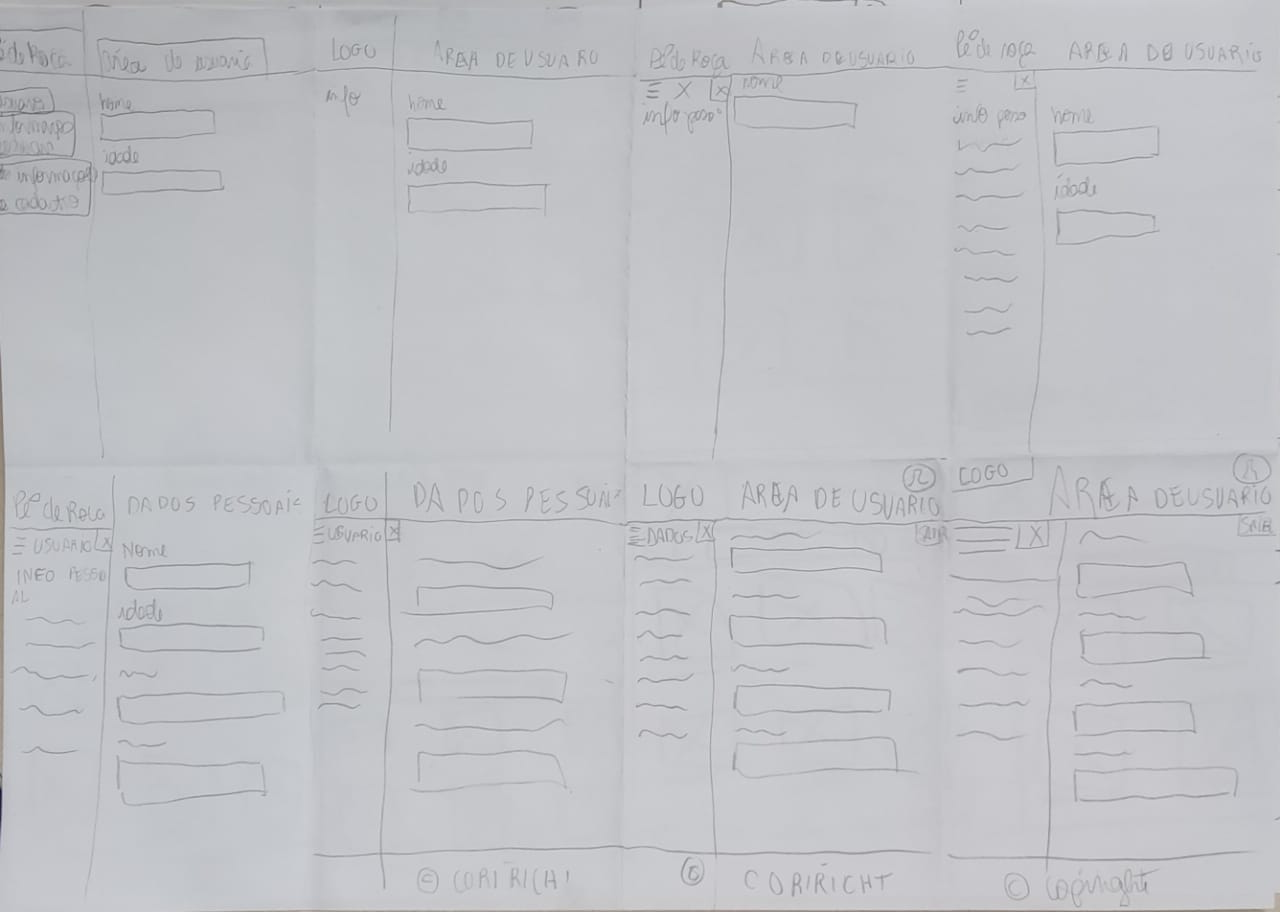 é de Roça
Área do usuario
nome
idade
informações
e cadastro
LOGO
AREA DE USUARO
info
nome
idade
Pé de Roça
AREA DE USUARIO
X
X
nome
info pesso
Pé de roça
AREA DE USUARIO
X
info peso
nome
idade
Pé de Roça
DADOS PESSOAIS
USUARIO X
Nome
INFO PESSO
AL
idade
LOGO
DADOS PESSOAIS
USUARIO X
© CORIRICHT
LOGO
R
AREA DE USUARIO
DADOS X
SAIR
©
CORIRICHT
LOGO
R
AREA DE USUARIO
X
SAIR
© Copirrighte